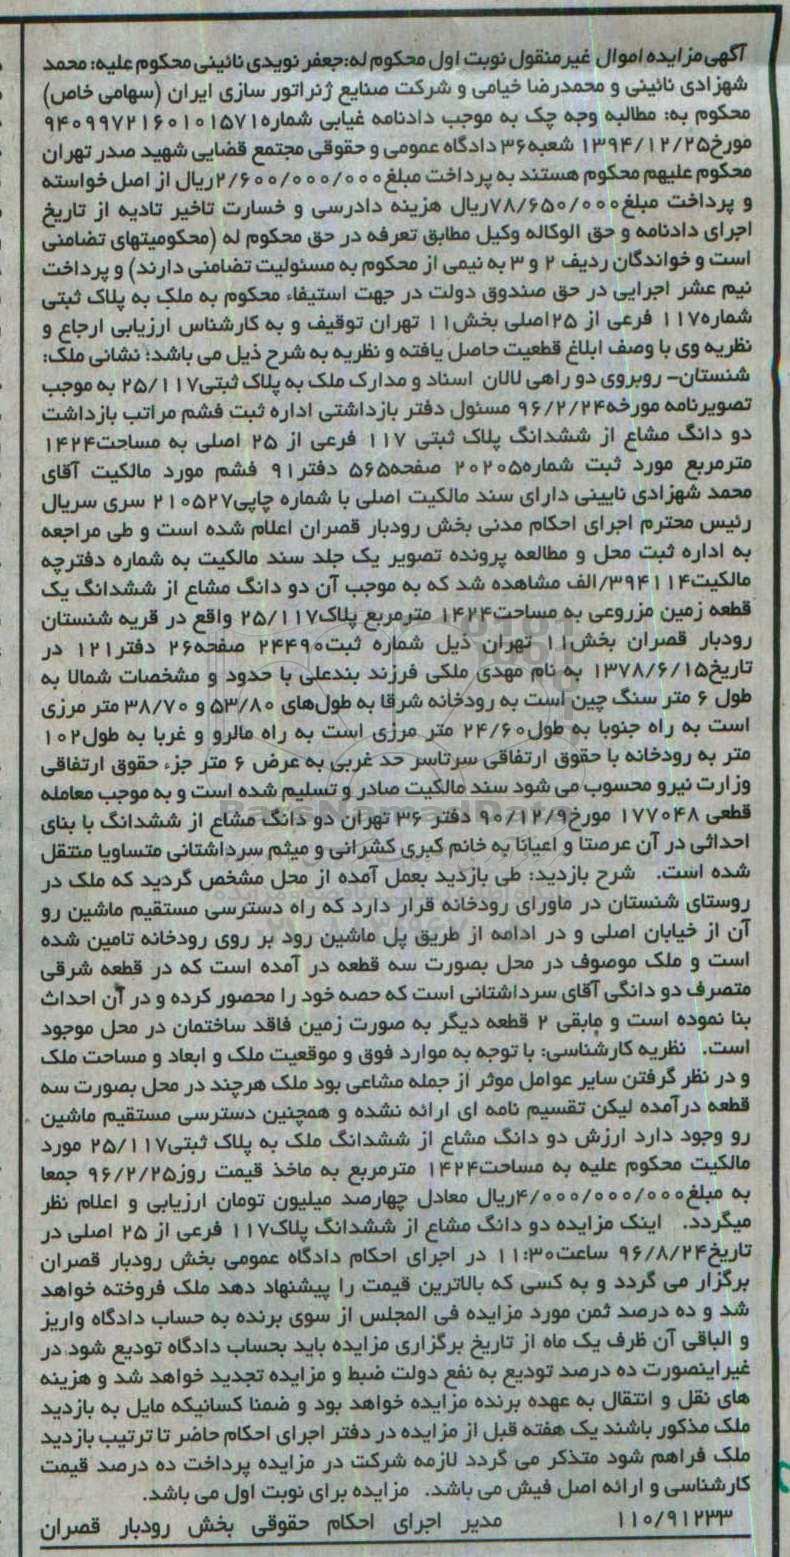 آگهی مزایده اموال غیرمنقول نوبت اول محکوم له:جعفر نویدی نائینی محکوم علیه: محمد
شهزادی نائینی و محمدرضا خیامی و شرکت صنایع ژنراتور سازی ایران (سهامی خاص)
محکوم به: مطالبه وجه چک به موجب دادنامه غیابی شماره۹۴۰۹۹۷۲۱۶۰۱۰۱۵۷۱
مورخ۱۳۹۴/۱۲/۲۵ شعبه۳۶ دادگاه عمومی و حقوقی مجتمع قضایی شهید صدر تهران
محکوم علیهم محکوم هستند به پرداخت مبلغ۲/۶۰۰/۰۰۰/۰۰۰ریال از اصل خواسته
و پرداخت مبلغ۷۸/۶۵۰/۰۰۰ریال هزینه دادرسی و خسارت تاخیر تادیه از تاریخ
اجرای دادنامه و حق الوکاله وکیل مطابق تعرفه در حق محکوم له (محکومیتهای تضامنی
است و خواندگان ردیف ۲ و ۳ به نیمی از محکوم به مسئولیت تضامنی دارند) و پرداخت
نیم عشر اجرایی در حق صندوق دولت در جهت استیفاء محکوم به ملک به پلاک ثبتی
شماره۱۱۷ فرعی از ۲۵اصلی بخش۱۱ تهران توقیف و به کارشناس ارزیابی ارجاع و
نظریه وی با وصف ابلاغ قطعیت حاصل یافته و نظریه به شرح ذیل می باشد: نشانی ملک:
شنستان- روبروی دو راهی لالان اسناد و مدارک ملک به پلاک ثبتی۲۵/۱۱۷ به موجب
تصویرنامه مورخه۹۶/۲/۲۴ مسئول دفتر بازداشتی اداره ثبت فشم مراتب بازداشت
دو دانگ مشاع از ششدانگ پلاک ثبتی ۱۱۷ فرعی از ۲۵ اصلی به مساحت۱۴۲۴
مترمربع مورد ثبت شماره۲۰۲۰۵ صفحه۵۶۵ دفتر۹۱ فشم مورد مالکیت آقای
محمد شهزادی نایینی دارای سند مالکیت اصلی با شماره چاپی۲۱۰۵۲۷ سری سریال
رئیس محترم اجرای احکام مدنی بخش رودبار قصران اعلام شده است و طی مراجعه
به اداره ثبت محل و مطالعه پرونده تصویر یک جلد سند مالکیت به شماره دفترچه
مالکیت۳۹۴۱۱۴/الف مشاهده شد که به موجب آن دو دانگ مشاع از ششدانگ یک
قطعه زمین مزروعی به مساحت۱۴۲۴ مترمربع پلاک۲۵/۱۱۷ واقع در قریه شنستان
رودبار قصران بخش۱۱ تهران ذیل شماره ثبت۲۴۴۹۰ صفحه۲۶ دفتر۱۲۱ در
تاریخ۱۳۷۸/۶/۱۵ به نام مهدی ملکی فرزند بندعلی با حدود و مشخصات شمالا به
طول ۶ متر سنگ چین است به رودخانه شرقا به طول‌های ۵۳/۸۰ و ۳۸/۷۰ متر مرزی
است به راه جنوبا به طول۲۴/۶۰ متر مرزی است به راه مالرو و غربا به طول۱۰۲
متر به رودخانه با حقوق ارتفاقی سرتاسر حد غربی به عرض ۶ متر جزء حقوق ارتفاقی
وزارت نیرو محسوب می شود سند مالکیت صادر و تسلیم شده است و به موجب معامله
قطعی ۱۷۷۰۴۸ مورخ۹۰/۱۲/۹ دفتر ۳۶ تهران دو دانگ مشاع از ششدانگ با بنای
احداثی در آن عرصتا و اعیانا به خانم کبری کشرانی و میثم سرداشتانی متساویا منتقل
شده است. شرح بازدید: طی بازدید بعمل آمده از محل مشخص گردید که ملک در
روستای شنستان در ماورای رودخانه قرار دارد که راه دسترسی مستقیم ماشین رو
آن از خیابان اصلی و در ادامه از طریق پل ماشین رود بر روی رودخانه تامین شده
است و ملک موصوف در محل بصورت سه قطعه در آمده است که در قطعه شرقی
متصرف دو دانگی آقای سرداشتانی است که حصه خود را محصور کرده و در آن احداث
بنا نموده است و مابقی ۲ قطعه دیگر به صورت زمین فاقد ساختمان در محل موجود
است. نظریه کارشناسی: با توجه به موارد فوق و موقعیت ملک و ابعاد و مساحت ملک
و در نظر گرفتن سایر عوامل موثر از جمله مشاعی بود ملک هرچند در محل بصورت سه
قطعه درآمده لیکن تقسیم نامه ای ارائه نشده و همچنین دسترسی مستقیم ماشین
رو وجود دارد ارزش دو دانگ مشاع از ششدانگ ملک به پلاک ثبتی۲۵/۱۱۷ مورد
مالکیت محکوم علیه به مساحت۱۴۲۴ مترمربع به ماخذ قیمت روز۹۶/۲/۲۵ جمعا
به مبلغ۴/۰۰۰/۰۰۰/۰۰۰ریال معادل چهارصد میلیون تومان ارزیابی و اعلام نظر
میگردد. اینک مزایده دو دانگ مشاع از ششدانگ پلاک۱۱۷ فرعی از ۲۵ اصلی در
تاریخ۹۶/۸/۲۴ ساعت۱۱:۳۰ در اجرای احکام دادگاه عمومی بخش رودبار قصران
برگزار می گردد و به کسی که بالاترین قیمت را پیشنهاد دهد ملک فروخته خواهد
شد و ده درصد ثمن مورد مزایده فی المجلس از سوی برنده به حساب دادگاه واریز
و الباقی آن ظرف یک ماه از تاریخ برگزاری مزایده باید بحساب دادگاه تودیع شود در
غیر اینصورت ده درصد تودیع به نفع دولت ضبط و مزایده تجدید خواهد شد و هزینه
های نقل و انتقال به عهده برنده مزایده خواهد بود و ضمنا کسانیکه مایل به بازدید
ملک مذکور باشند یک هفته قبل از مزایده در دفتر اجرای احکام حاضر تا ترتیب بازدید
ملک فراهم شود متذکر می گردد لازمه شرکت در مزایده پرداخت ده درصد قیمت
کارشناسی و ارائه اصل فیش می باشد. مزایده برای نوبت اول می باشد.
۱۱۰/۹۱۲۳۳ مدیر اجرای احکام حقوقی بخش رودبار قصران